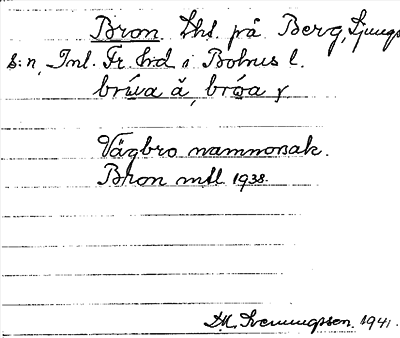 Bron. Lhs. på Berg, Ljungs
s:n, Inl. Fr. hd i Bohus l.
brúa ă, bróa γ
Vägbro namnorsak.
Bron mtl 1938.
M. Svenungsson. 1941.